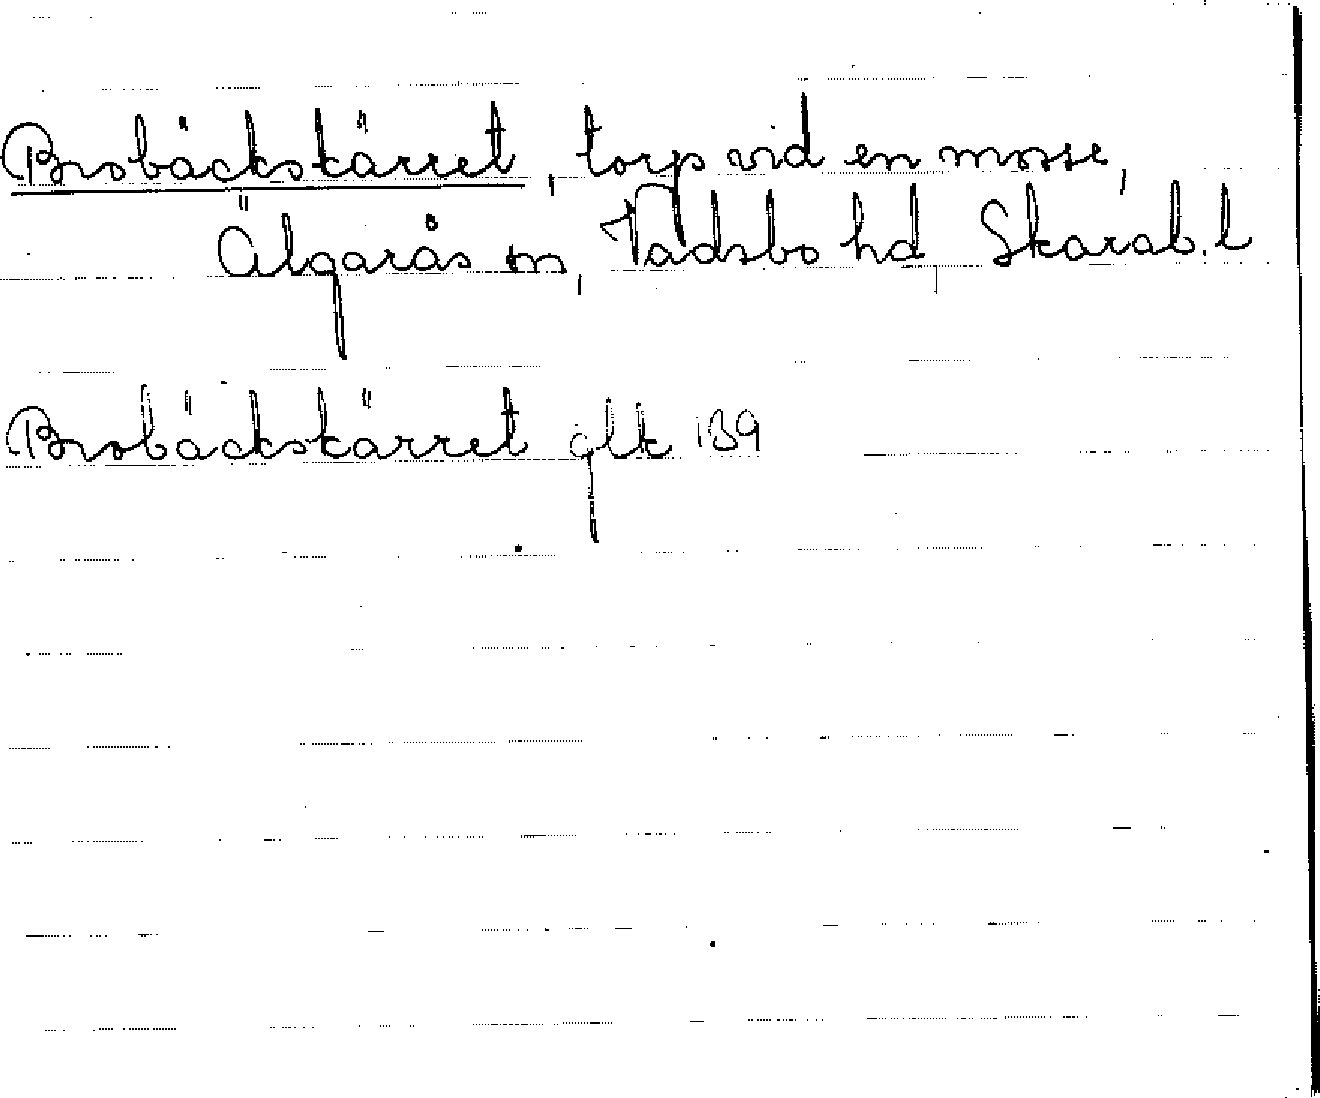 Brobäckskärret, torp vid en mosse,
Älgarås sn, Vadsbo hd Skarab. l
Brobäckskärret glk 139